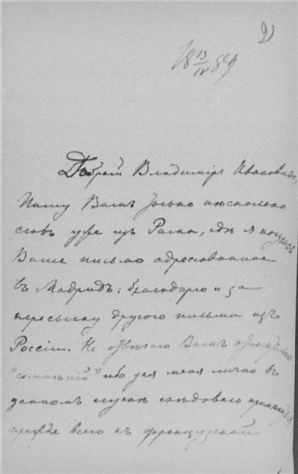 2)
18 13/IV 89
Добрый Владимiръ Ивановичъ,
Пишу Вамъ только нѣсколько
словъ уже изъ Рима, гдѣ я
Ваше письмо адресованное
въ Мадридъ: благодарю и за
пересылку другого письма изъ
Россiи. Не Вамъ
ибо для меня лично въ
данномъ случаѣ слѣдовало
прежде всего къ французской